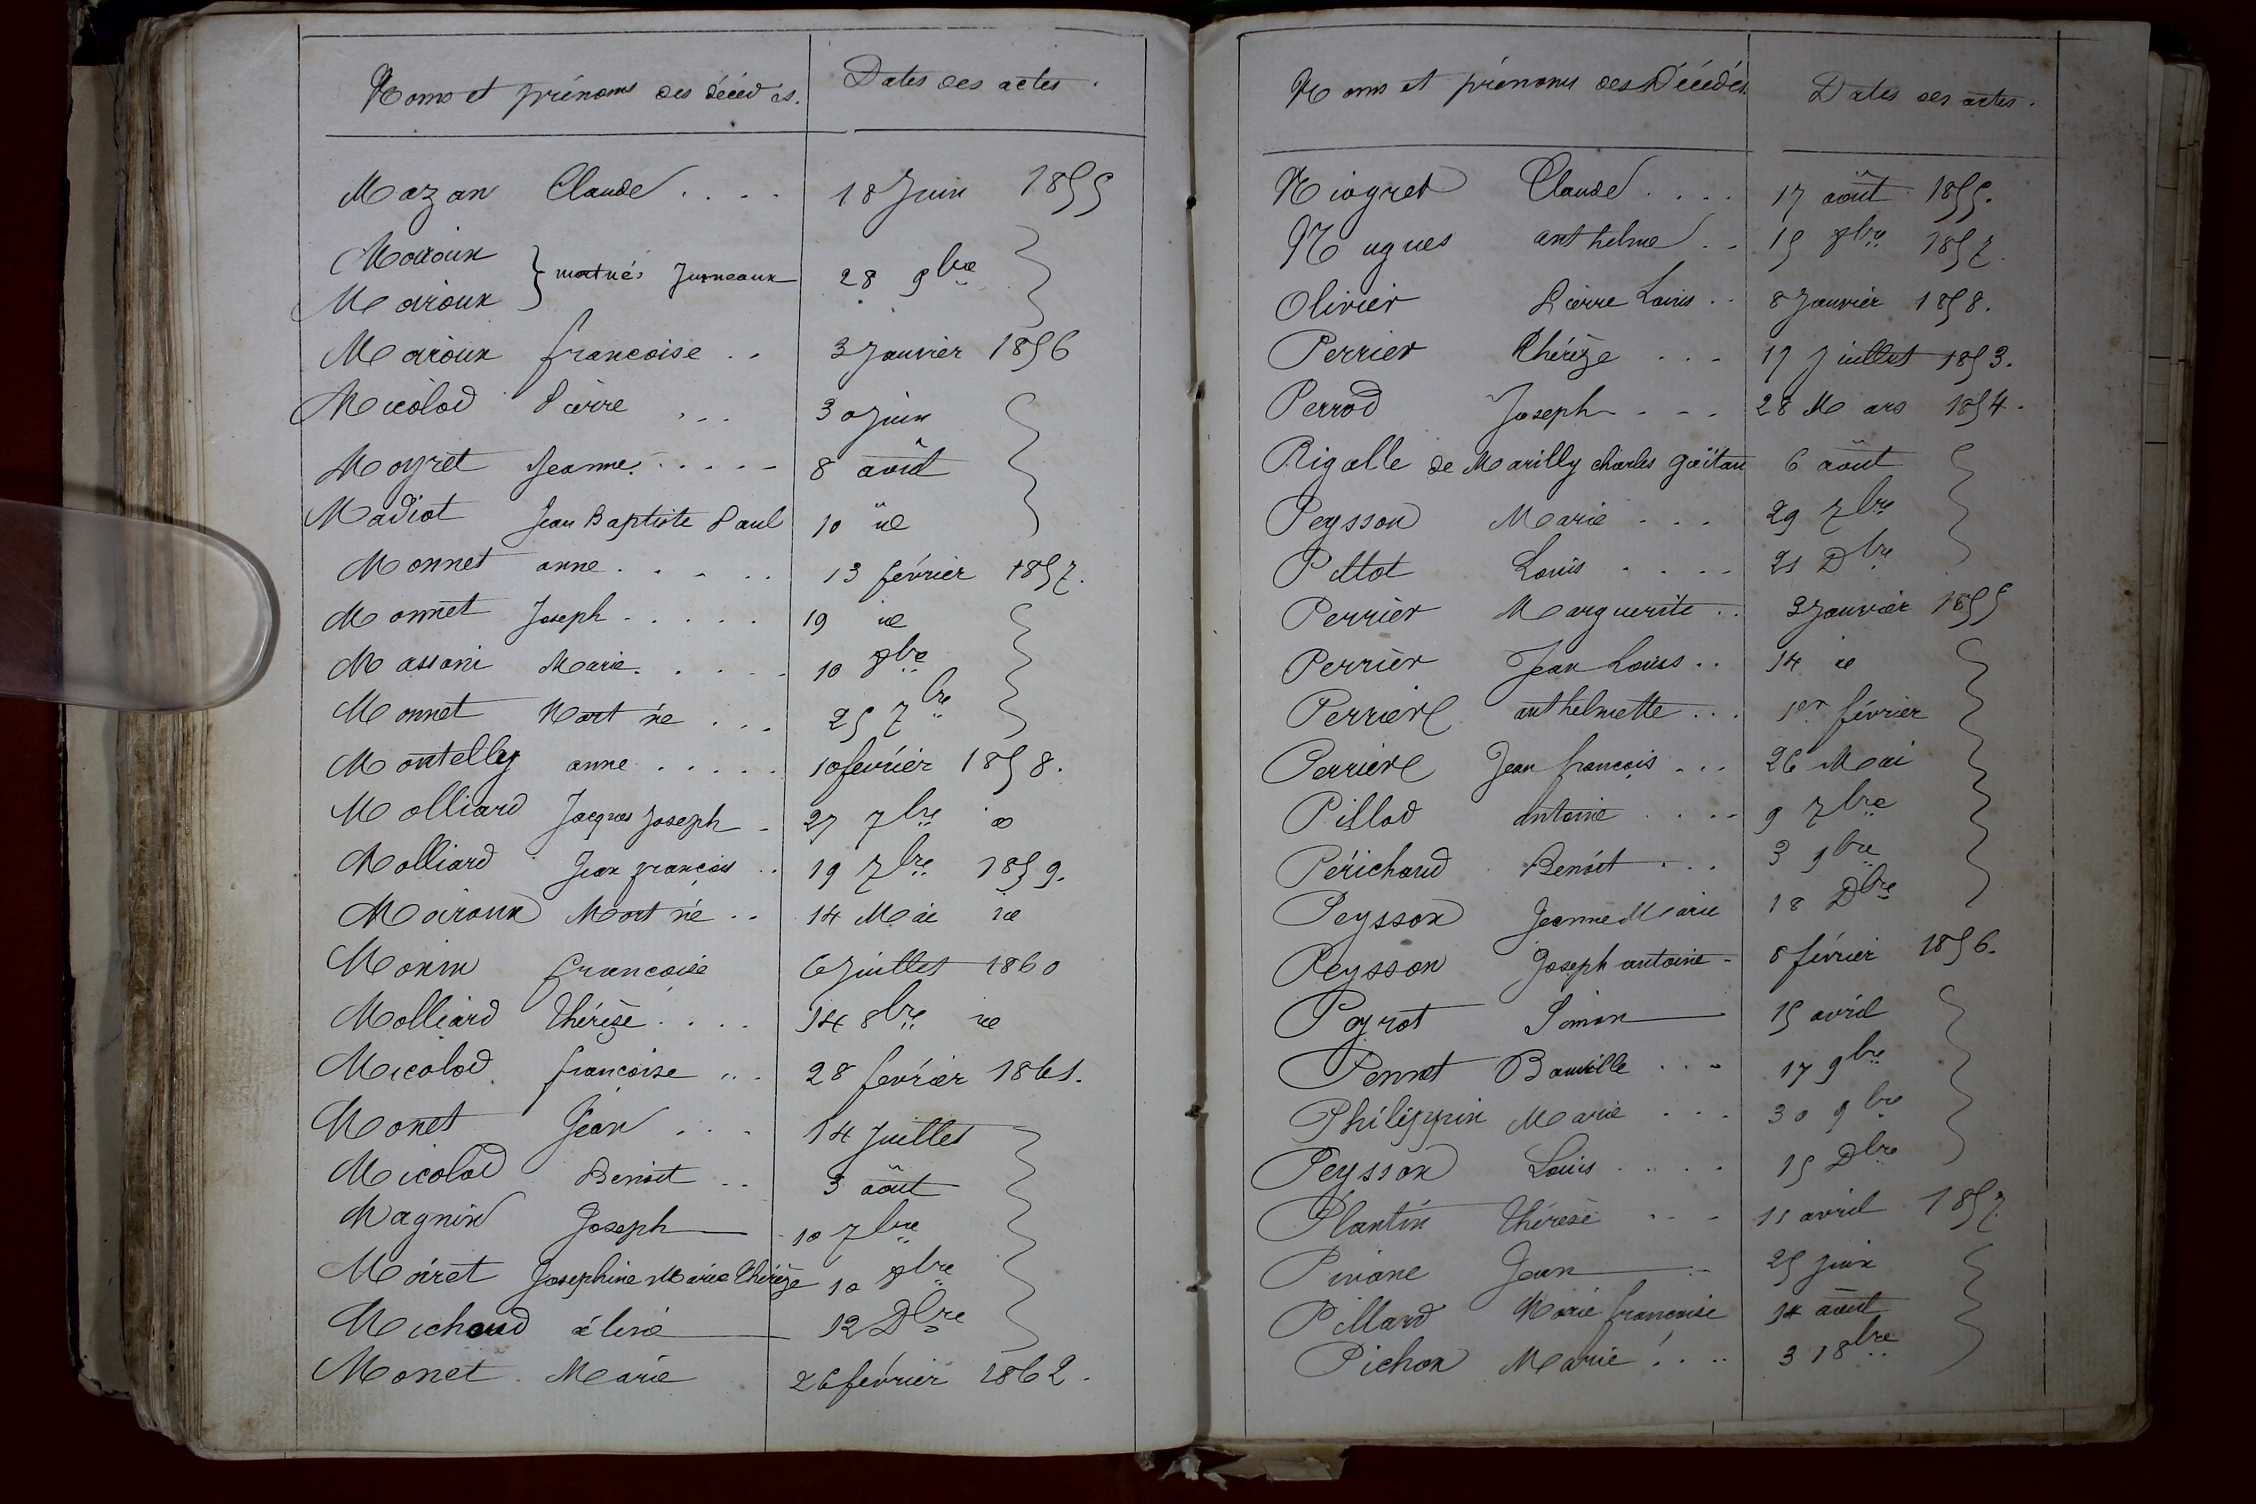 Noms et prénoms des décédés. Dates des actes.
Mazan Claude .... 18 Juin 1855
Moiroux
} mort nés Jumeaux 28 9bre
Moiroux
Moiroux françoise .. 3 Janvier 1856
Micolod Pierre ... 30 Juin
Moyret Jeanne ..... 8 août
Madiot Jean Baptiste Paul 10 id
Monnet anne ..... 13 février 1857.
Monnet Joseph ..... 19 id
Massoni Marie ..... 10 8bre
Monnet Mort né ... 25 7bre
Montelley anne ..... 10 février 1858.
Molliard Jacques Joseph - 27 7bre id
Molliard Jean françois .. 19 7bre 1859.
Moiroux Mort né .. 14 Mai id
Monin françoise 6 Juillet 1860
Molliard Thérèze .... 14 8bre id
Micolod françoise ... 28 février 1861.
Monet Jean ... 14 Juillet
Micolod Benoit .. 3 août
Magnin Joseph 10 7bre
Moiret Josephine Marie Thérèze 10 8bre
Michaud éline 12 Dbre
Monet Marie 26 février 1862.
Noms et prénoms des Décédés Dates des actes.
Niogret Claude .... 17 août 1855.
Nugues anthelme .. 15 8bre 1857.
Olivier Pierre Louis .. 8 Janvier 1858.
Perrier Thérèze ... 17 Juillet 1853.
Perrod Joseph ... 28 Mars 1854.
Rigolle de Marilly charles Gaïtan 6 août
Peysson Marie ... 29 7bre
Pittot Louis .... 21 Dbre
Perrier Marguerite .. 3 Janvier 1855
Perrier Jean Louis .. 14 id
Perrier anthelmette ... 1er février
Perrier Jean françois ... 26 Mai
Pillod antoine .... 9 7bre
Périchaud Benoit ... 3 9bre
Peysson Jeanne Marie 18 Dbre
Peysson Joseph antoine - 8 février 1856.
Peyrot Simon 15 avril
Pennet ... 17 9bre
Philippin Marie ... 30 9bre
Peysson Louis .... 15 Dbre
Plantin Thérèse ... 11 avril 1857
Jean 25 Juin
Pillard Marie françoise 14 août
Pichon Marie .... 31 8bre